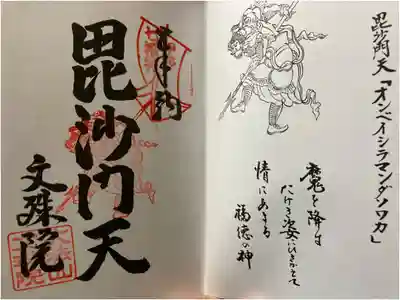 毘沙門天『オンベイシラマンダソワカ』
魔を降す
たけき姿にひきかへて
情にあまる
福徳の神
奉拝
毘沙門天
文殊院